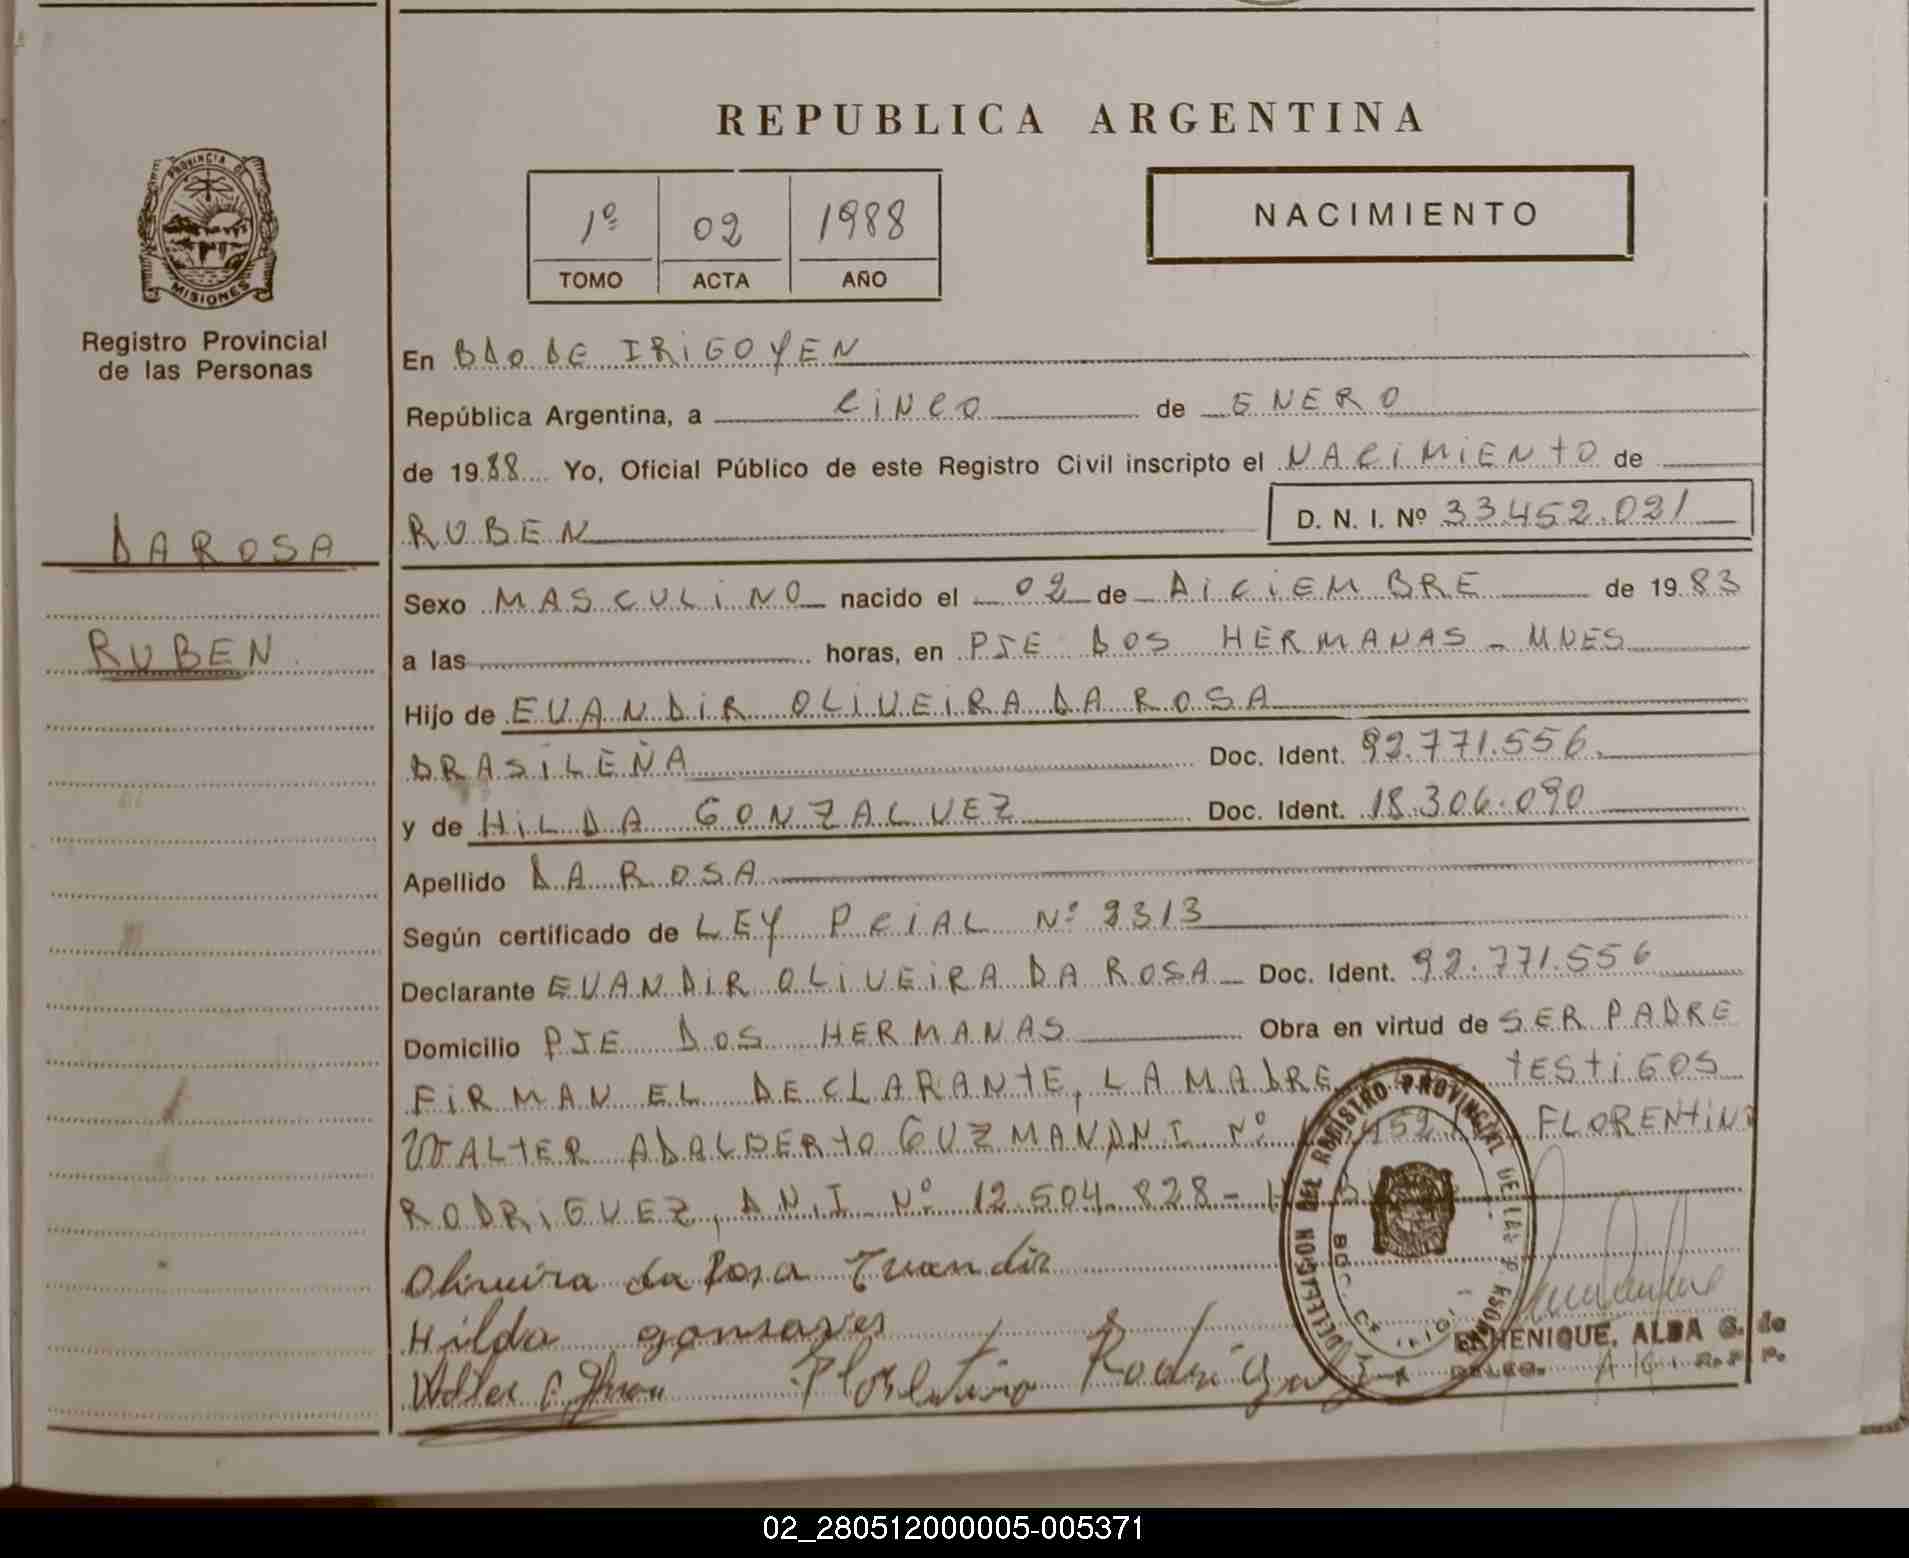 REPUBLICA ARGENTINA
PROVINCIA DE
MISIONES
1º 02 1988
TOMO ACTA AÑO
NACIMIENTO
Registro Provincial
de las Personas
DA ROSA
RUBEN
En BDO DE IRIGOYEN
República Argentina, a CINCO de ENERO
de 1988 Yo, Oficial Público de este Registro Civil inscripto el NACIMIENTO de
RUBEN D. N. I. Nº 33.452.021
Sexo MASCULINO nacido el 02 de DICIEMBRE de 1983
a las horas, en PJE DOS HERMANAS - MNES
Hijo de EVANDIR OLIVEIRA DA ROSA
BRASILEÑA Doc. Ident. 92.771.556.
y de HILDA GONZALVEZ Doc. Ident. 18.306.090
Apellido DA ROSA
Según certificado de LEY PCIAL Nº 2313
Declarante EVANDIR OLIVEIRA DA ROSA Doc. Ident. 92.771.556
Domicilio PJE DOS HERMANAS Obra en virtud de SER PADRE
FIRMAN EL DECLARANTE, LA MADRE TESTIGOS
WALTER ADALBERTO GUZMAN DNI Nº FLORENTINO
RODRIGUEZ, D.N.I. Nº 12.504.828 -
Oliveira da Rosa Evandir
Hilda gonsaves
Florentino Rodrigue
DELEGACION DEL REGISTRO PROVINCIAL DE LAS PERSONAS
ECHENIQUE, ALBA G. de
R.P.P.
02_280512000005-005371